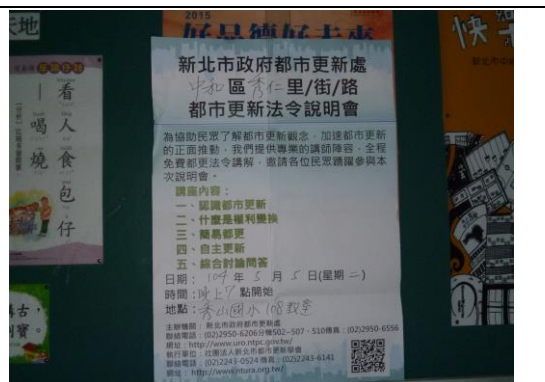 天地
看
人
食
包
仔
一
喝
燒
2015
好品德好未來
快
新北市中
新北市政府都市更新處
中和區秀仁里/街/路
都市更新法令說明會
為協助民眾了解都市更新觀念,加速都市更新
的正面推動,我們提供專業的講師陣容,全程
免費都更法令講解,邀請各位民眾踴躍參與本
次說明會。
講座內容:
一、認識都市更新
二、什麼是權利變換
三、簡易都更
四、自主更新
五、綜合討論問答
日期:104年5月5日(星期二)
時間:晚上7點開始
地點:秀山國小108教室
主辦機關:新北市政府都市更新處
聯絡電話:(02)2950-6206分機502~507、510傳真:(02)2950-6556
網址:http://www.uro.ntpc.gov.tw/
執行單位:社團法人新北市都市更新學會
聯絡電話:(02)2243-0524 傳真:(02)2243-6141
網址:http://www.ntura.org.tw/
古,
寶。